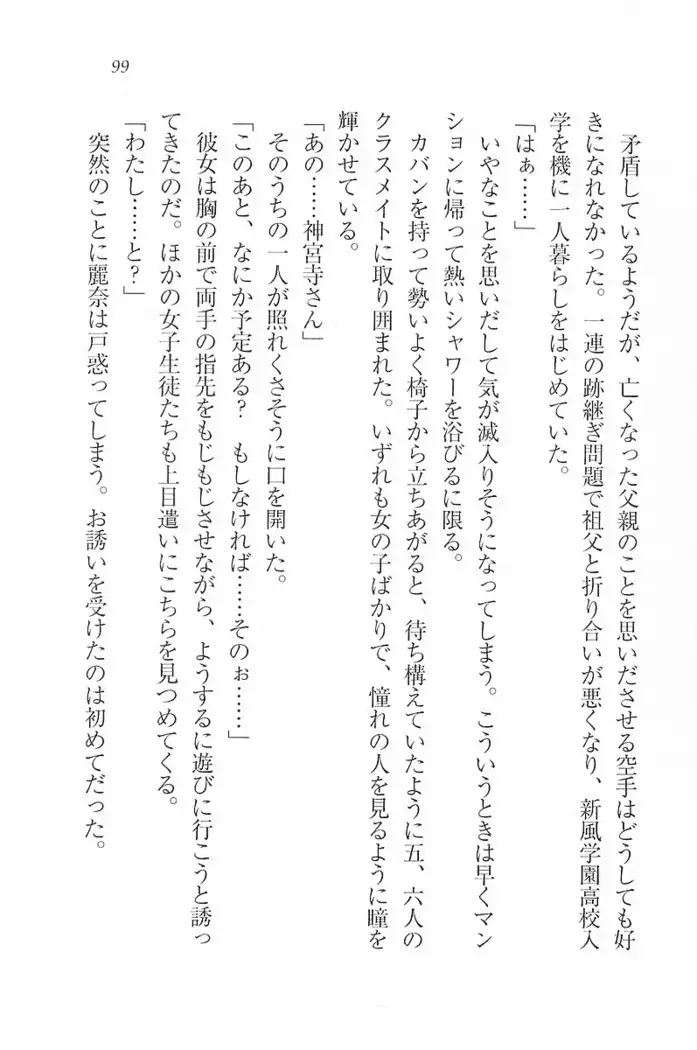 99
矛盾しているようだが、亡くなった父親のことを思いださせる空手はどうしても好
きになれなかった。一連の跡継ぎ問題で祖父と折り合いが悪くなり、新風学園高校入
学を機に一人暮らしをはじめていた。
「はぁ……」
いやなことを思いだして気が滅入りそうになってしまう。こういうときは早くマン
ションに帰って熱いシャワーを浴びるに限る。
カバンを持って勢いよく椅子から立ちあがると、待ち構えていたように五、六人の
クラスメイトに取り囲まれた。いずれも女の子ばかりで、憧れの人を見るように瞳を
輝かせている。
「あの……神宮寺さん」
そのうちの一人が照れくさそうに口を開いた。
「このあと、なにか予定ある？　もしなければ……そのぉ……」
彼女は胸の前で両手の指先をもじもじさせながら、ようするに遊びに行こうと誘っ
てきたのだ。ほかの女子生徒たちも上目遣いにこちらを見つめてくる。
「わたし……と？」
突然のことに麗奈は戸惑ってしまう。お誘いを受けたのは初めてだった。